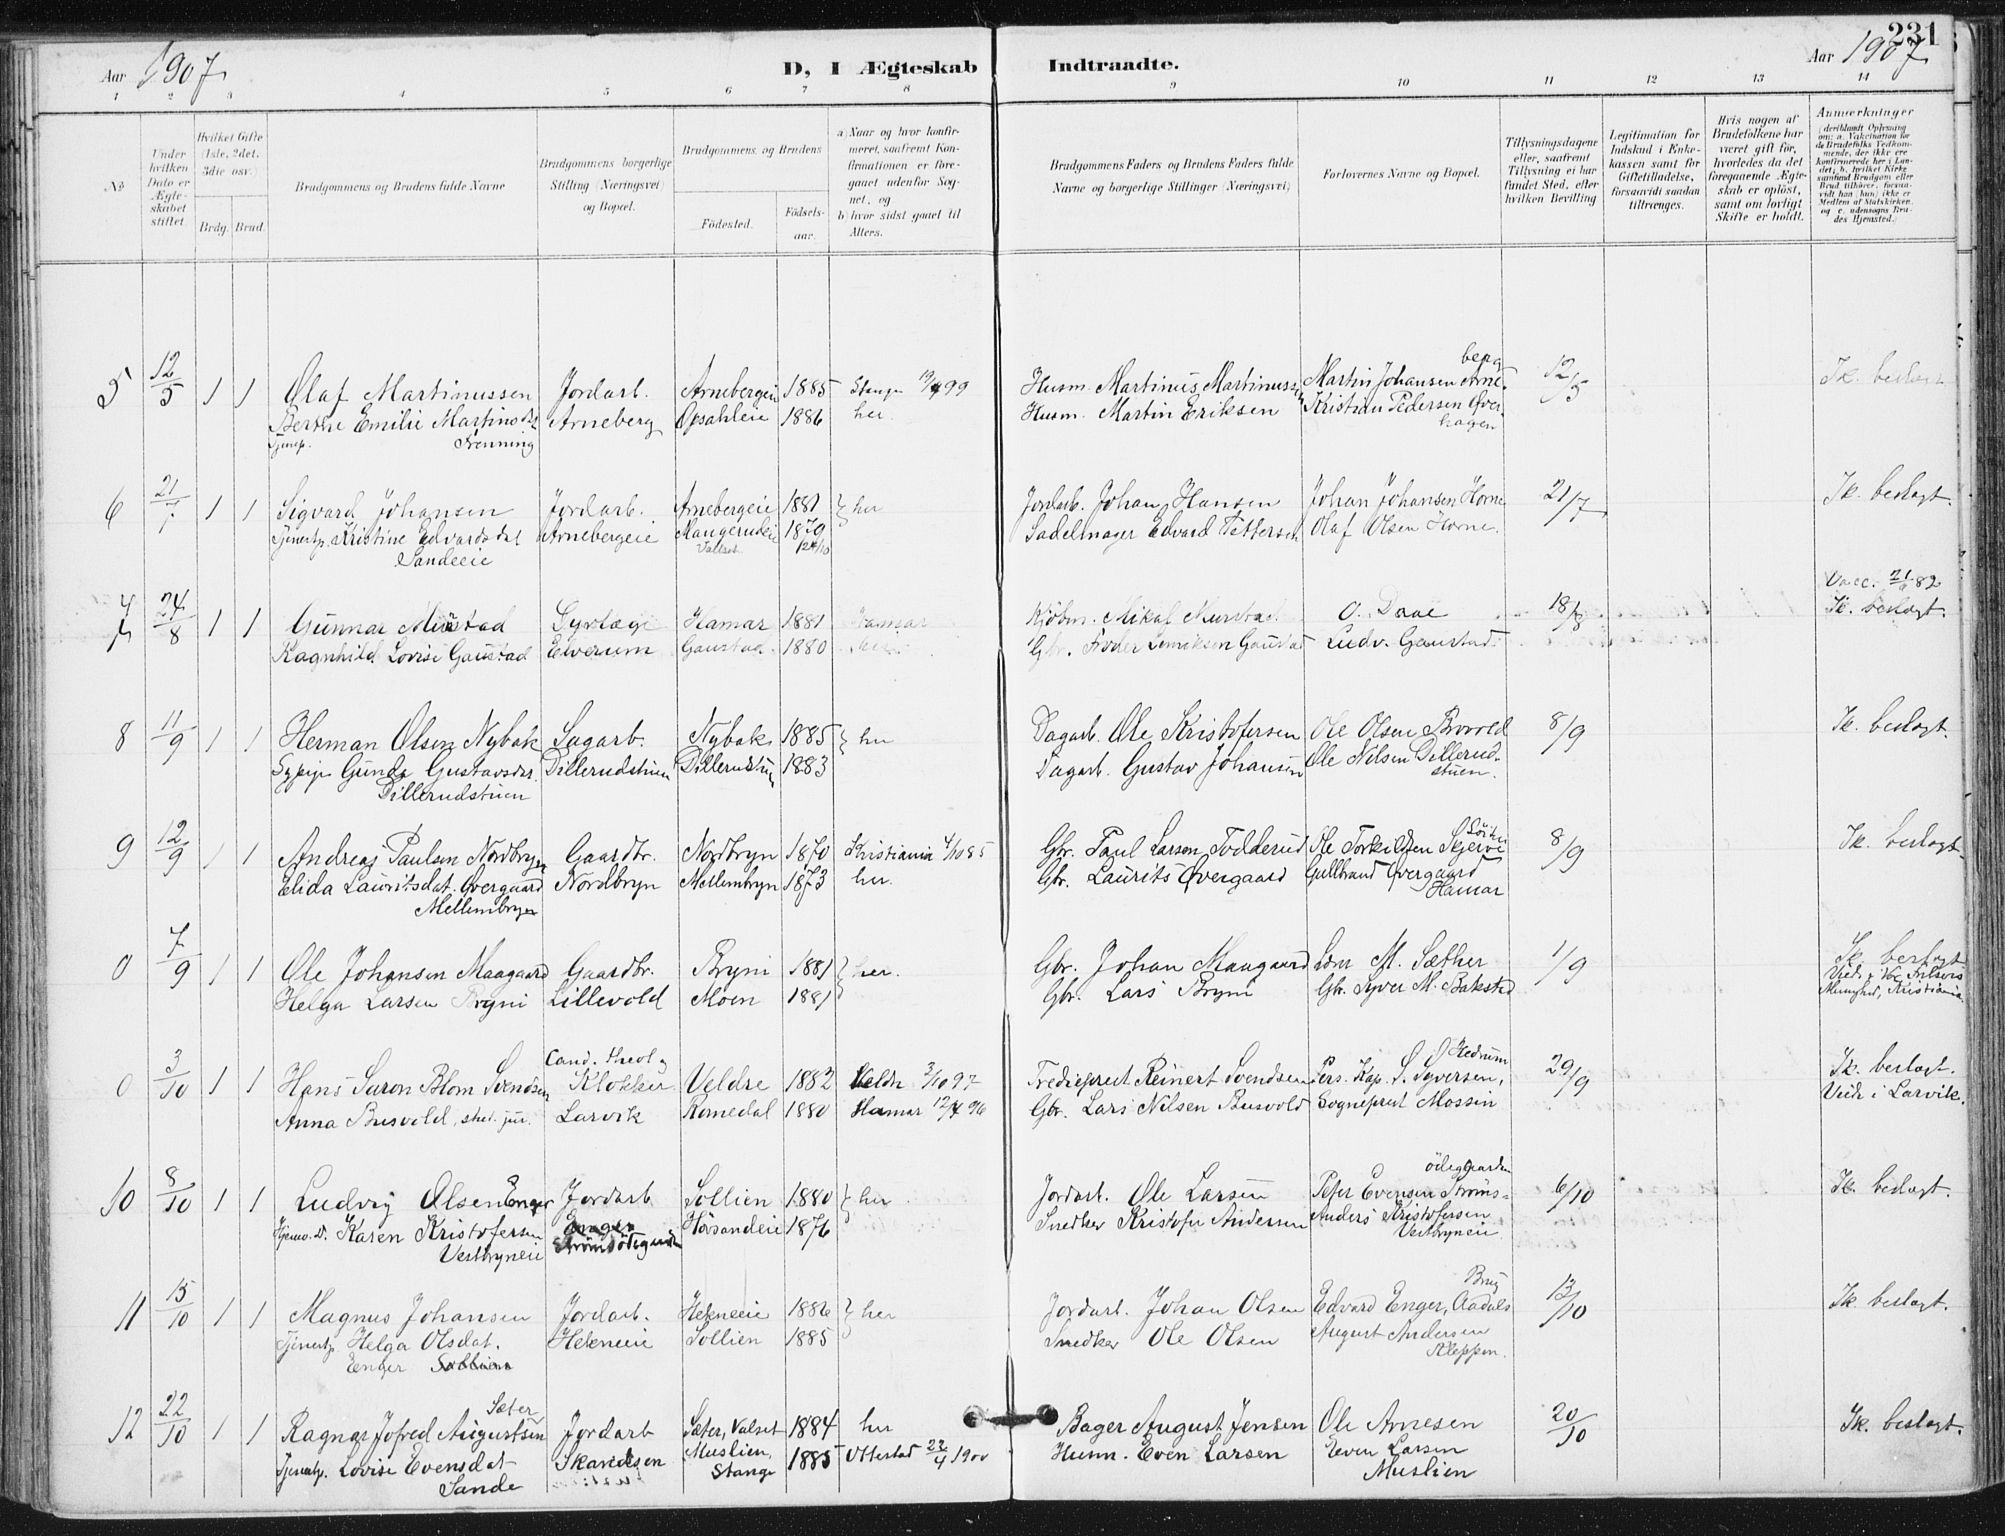 231
Aar 1907
D, I Ægteskab Indtraadte.
Aar 1907
1 2 3 4 5 6 7 8 9 10 11 12 13 14
No
Under hvilken Dato er Ægteskabet stiftet.
Hvilket Gifte (1ste, 2det, 3die osv.)
Brdg. Brud.
Brudgommens og Brudens fulde Navne
Brudgommens borgerlige Stilling (Næringsvei) og Bopæl.
Brudgommens og Brudens
Fødested. Fødselsaar.
a) Naar og hvor konfirmeret, saafremt Konfirmationen er foregaaet udenfor Sognet, og
b) hvor sidst gaaet til Alters.
Brudgommens Faders og Brudens Faders fulde Navne og borgerlige Stillinger (Næringsvei)
Forlovernes Navne og Bopæl.
Tillysningsdagene eller, saafremt Tillysning ei har fundet Sted, efter hvilken Bevilling
Legitimation for Indskud i Enkekassen samt for Giftetilladelse, forsaavidt saadan tiltrænges.
Hvis nogen af Brudefolkene har været gift før, hvorledes da det foregaaende Ægteskab er opløst, samt om lovligt Skifte er holdt.
Anmærkninger (deriblandt Oplysning om: a. Vakcination for de Brudefolks Vedkommende, der ikke ere konfirmerede her i Landet; b. hvilket Kirkesamfund Brudgom eller Brud tilhører, forsaavidt han (hun) ikke er Medlem af Statskirken, og c. udensogns Brudes Hjemsted.)
5 12/5 1 1 Olaf Martinussen Jordarb. Arnebergeie 1885 Stange 99 Husm. Martinus Martinussen Martin Johansen Arneberg 12/5 Ik. beslægt.
Berthe Emilie Martinsdt. Arneberg Opsahleie 1886 her. Husm. Martin Eriksen Kristian Pedersen Øverhagen
Tjenep. Frenning
6 21/7 1 1 Sigvard Johansen Jordarb. Arnebergeie 1881 } her Jordarb. Johan Hansen Johan Johansen Horne 21/7 Ik. beslægt.
Tjenertp. Kristine Edvardsdat. Arnebergeie Mangerudeie 1879 Sadelmager Edvard Pettersen Olaf Olsen Horne.
Sandeeie Valset
7 24/8 1 1 Gunnar Mustad Hamar 1881 Hamar Kjøbm. Mikal Murstad O. Daae 18/8 Vacc. 82 Ik. beslægt.
Ragnhild Lovise Gaustad Elverum Gaustad 1880 Gbr. Gaustad Ludv. Gaustad.
8 11/9 1 1 Herman Olsen Nybak Sagarb. Nybak 1885 } her Dagarb. Ole Kristofersen Ole Olsen 8/9 Ik. beslægt.
Sypige Gunda Gustavsdat. Dillerudstuen Dillerudstuen 1883 Dagarb. Gustav Johansen Ole Nilsen Dillerudstuen.
Dillerudstuen
9 12/9 1 1 Andreas Paulsen Nordbryn Gaardbr. Nordbryn 1870 Kristiania 4/10 85 Gbr. Paul Larsen Todderud Ole Torkildsen Løiten 8/9 Ik. beslægt.
Elida Lauritsdat. Øvergaard Nordbryn Mellembryn 1873 her. Gbr. Laurits Øvergaard Gulbrand Øvergaard Hamar
Mellembryn
0 7/9 1 1 Ole Johansen Maagaard Gaardbr. Bryni 1881 } her. Gbr. Johan Maagaard M. Sæther 1/9 Ik. beslægt.
Helga Larsen Bryni Lillevold Moen 1881 Gbr. Lars Bryni Gbr. Syver M. Bakstad Menighed, Kristiania.
0 3/10 1 1 Hans Saron Blom Svendsen Cand. theol. Klokker Veldre 1882 Veldr 3/10 97 Tredieprest Reinert Svendsen Pers. Kap. S. Syversen, Hedrum 29/9 Ik. beslægt.
Anna Busvold, stud. jur. Larvik Romedal 1880 Hamar 12/4 96 Gbr. Lars Nilsen Busvold Sogneprest Mossin Viede i Larvik.
10 8/10 1 1 Ludvig Olsen Enger Jordarb. Sollien 1880 } her Jordarb. Ole Larsen Peter Evensen Strømsødegaarden 6/10 Ik. beslægt.
Hjemv. D. Karen Kristofersen Enger Høvsandeie 1876 Snedker Kristofer Andersen Anders Kristofersen
Vestbryneie Strømsødegaarden Vestbryneie
11 15/10 1 1 Magnus Johansen Jordarb. Hekneeie 1886 } her Jordarb. Johan Olsen Edvard Enger, Aadals Brug 13/10 Ik. beslægt.
Tjenertp. Helga Olsdat. Hekneeie Sollien 1885 Snedker Ole Olsen August Andersen
Enger Sollien Kleppen.
12 22/10 1 1 Ragnar Jofred Augustsen Sæter Jordarb Sæter, Valset 1884 her Bager August Jensen Ole Arnesen 20/10 Ik. beslægt.
Tjenertp. Lovise Evensdat Skaraasen Muslien, Stange 1885 Ottestad 22/4 1900 Husm. Even Larsen Even Larsen
Sande Muslien